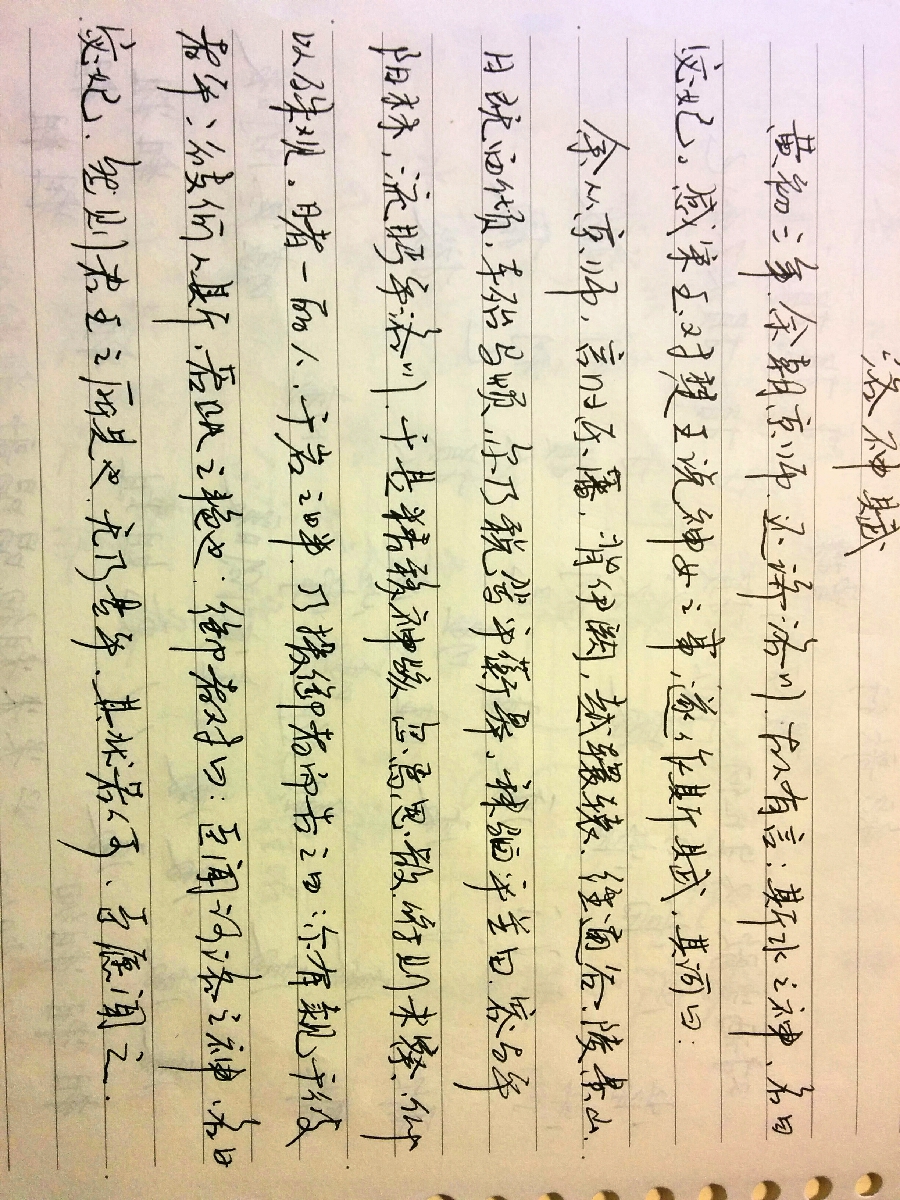 洛神赋
黄初三年，余朝京师，还济洛川，古人有言：斯水之神，名曰
宓妃。感宋玉对楚王说神女之事，遂作斯赋，其词曰：
余从京师，言归东藩，背伊阙，越轘辕，经通谷，陵景山。
日既西倾，车殆马烦，尔乃税驾乎蘅皋，秣驷乎芝田，容与乎
阳林，流眄乎洛川，于是精移神骇，忽焉思散，俯则未察，仰
以殊观。睹一丽人，于岩之畔，乃援御者而告之曰，尔有觌于彼
者乎？彼何人斯，若此之艳也，御者对曰：臣闻河洛之神，名曰
宓妃，然则君王之所见也，无乃是乎，其状若何，吾愿闻之。